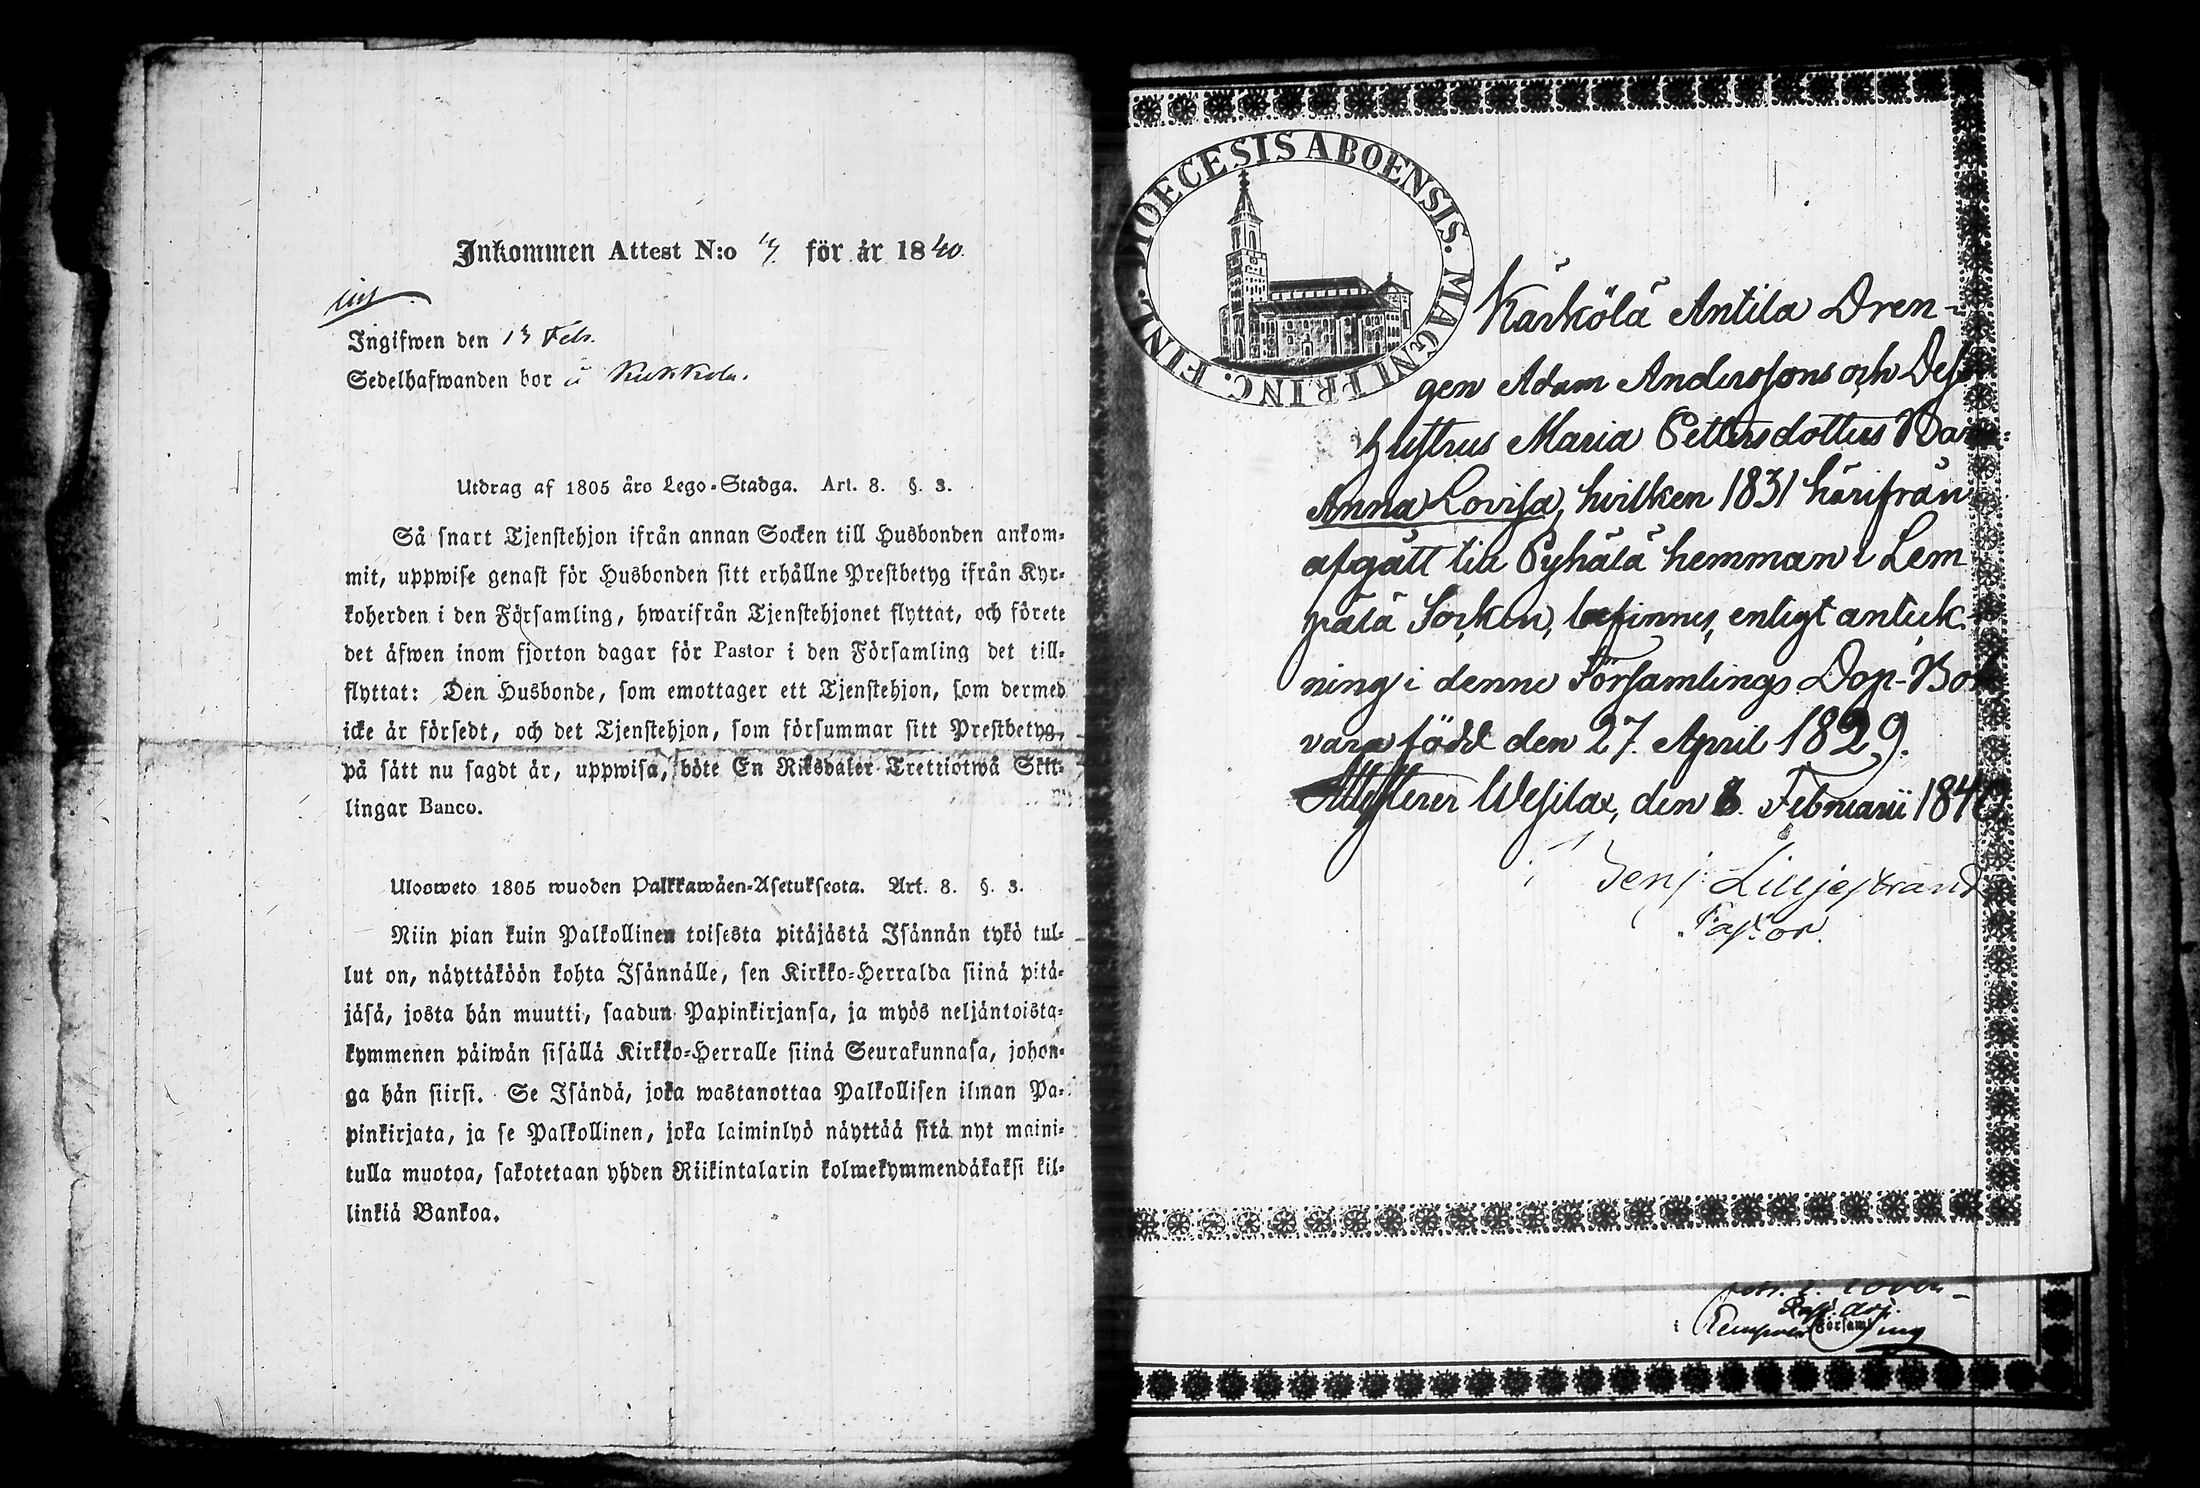 Inkommen Attest N:o för år 1840.
Ingifwen den 13 Feb.
Sedelhafwanden bor i Kukkola.
Utdrag af 1805 års Lego-Stadga. Art. 8. §. 3.
Så snart Tjenstehjon ifrån annan Socken till Husbonden ankom-
mit, uppwise genast för Husbonden sitt erhållne Prestbetyg ifrån Kyr-
koherden i den Församling, hwarifrån Tjenstehjonet flyttat, och förete
det äfwen inom fjorton dagar för Pastor i den Församling det till-
flyttat: Den Husbonde, som emottager ett Tjenstehjon, som dermed
icke är försedt, och det Tjenstehjon, som försummar sitt Prestbetyg,
på sätt nu sagdt är, uppwisa, böte En Riksdaler Trettiotwå Skil-
lingar Banco.
Ulosweto 1805 wuoden Palkkawäen-Asetuksesta. Art. 8. §. 3.
Niin pian kuin Palkollinen toisesta pitäjästä Isännän tykö tul-
lut on, näyttäköön kohta Isännälle, sen Kirkko-Herralda siinä pitä-
jäsä, josta hän muutti, saadun Papinkirjansa, ja myös neljäntoista-
kymmenen päiwän sisällä Kirkko-Herralle siinä Seurakunnasa, johon-
ga hän siirsi. Se Isändä, joka wastanottaa Palkollisen ilman Pa-
pinkirjata, ja se Palkollinen, joka laiminlyö näyttää sitä nyt maini-
tulla muotoa, sakotetaan yhden Riikintalarin kolmekymmendäkaksi kil-
linkiä Bankoa.
DIOECESIS ABOENSIS. MAGNI PRINC. FINL.
Kärkölä Antila Dren-
gen Adam Anderssons och Dess
Hustrus Maria Pettersdotters Barn:
Anna Lovisa, hvilken 1831 härifrån
afgått till Pyhälä hemman i Lem
pälä Socken, befinnes, enligt anteck-
ning i denne Församlings Dop-Bok
vara född den 27. April 1829.
Attesterer Wesilax, den 8. Februarii 1840
Benj. Lilljestrand
Pastor.
Past. adj.
i Församling